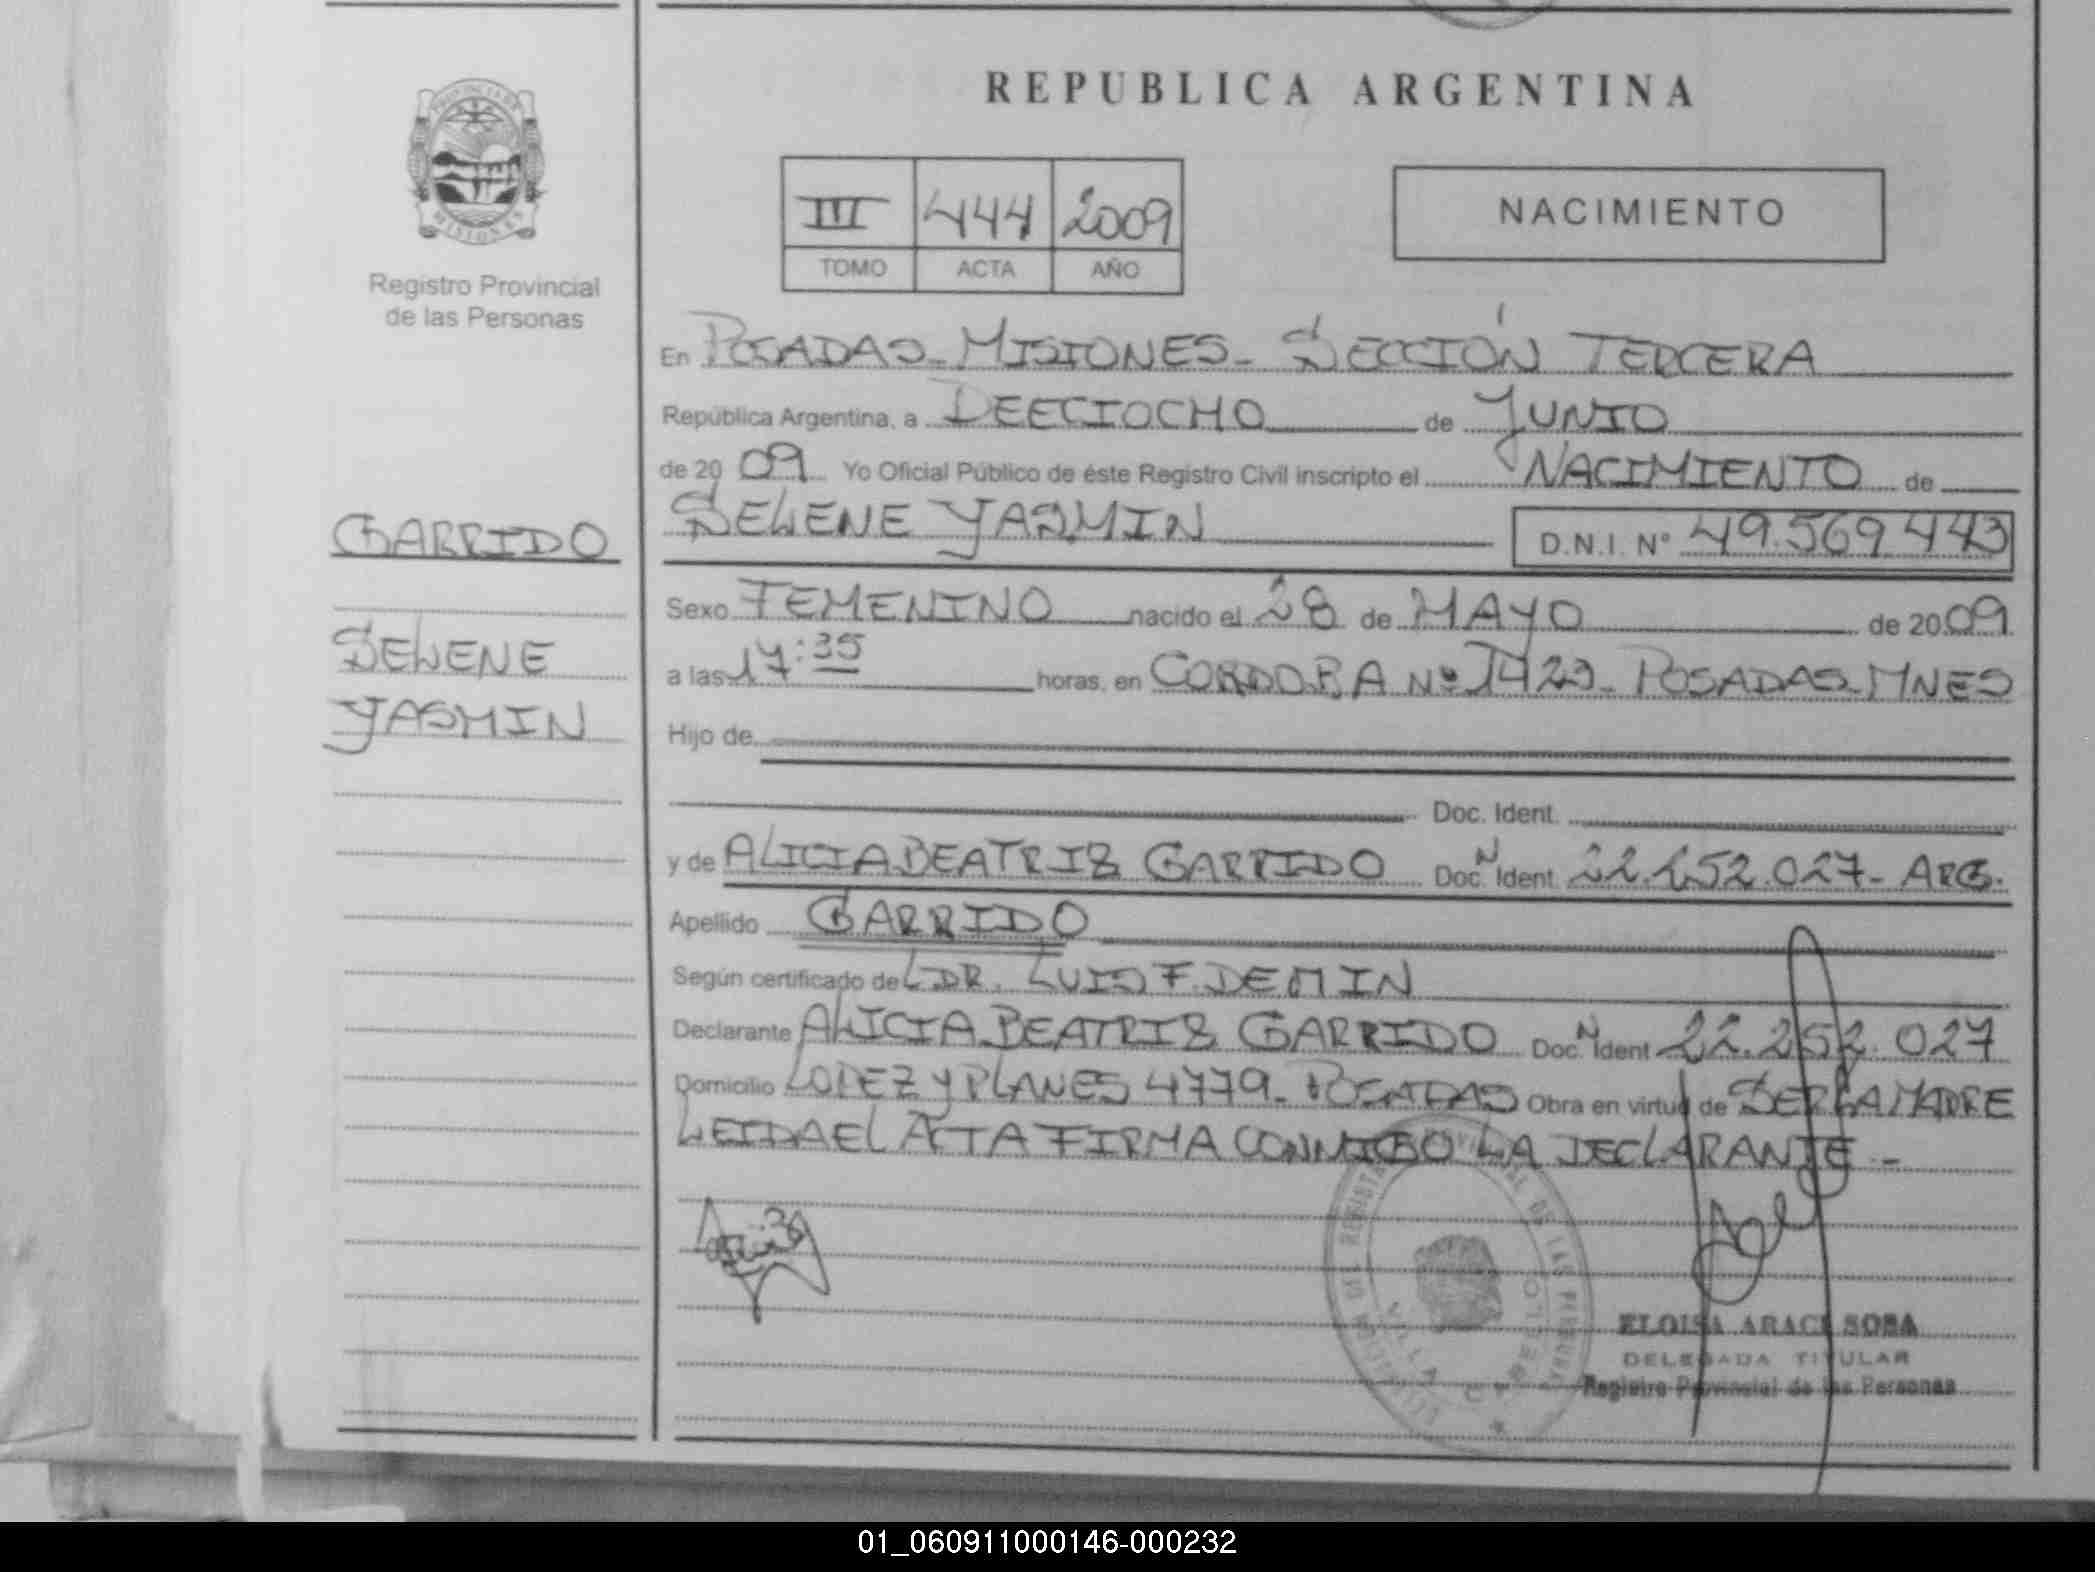 REPUBLICA ARGENTINA
PROVINCIA DE
MISIONES
Registro Provincial
de las Personas
III 444 2009
TOMO ACTA AÑO
NACIMIENTO
En POSADAS - MISIONES - SECCIÓN TERCERA
República Argentina, a DIECIOCHO de JUNIO
de 20 09 Yo Oficial Público de éste Registro Civil inscripto el NACIMIENTO de
SELENE YASMIN D.N.I. Nº 49.569.443
GARRIDO
SELENE
YASMIN
Sexo FEMENINO nacido el 28 de MAYO de 2009
a las 17:35 horas, en CORDOBA Nº 1423 - POSADAS - MNES
Hijo de
Doc. Ident.
y de ALICIA BEATRIZ GARRIDO Doc. N Ident 22.252.027 - ARG.
Apellido GARRIDO
Según certificado de DR. LUIS F. DEMIN
Declarante ALICIA BEATRIZ GARRIDO Doc. N Ident 22.252.027
Domicilio LOPEZ Y PLANES 4779 - POSADAS Obra en virtud de SER LA MADRE
LEIDA EL ACTA FIRMA CONMIGO LA DECLARANTE -
VILLA CABELLO
ELOISA ARACI SOSA
DELEGADA TITULAR
Registro Provincial de las Personas
01_060911000146-000232